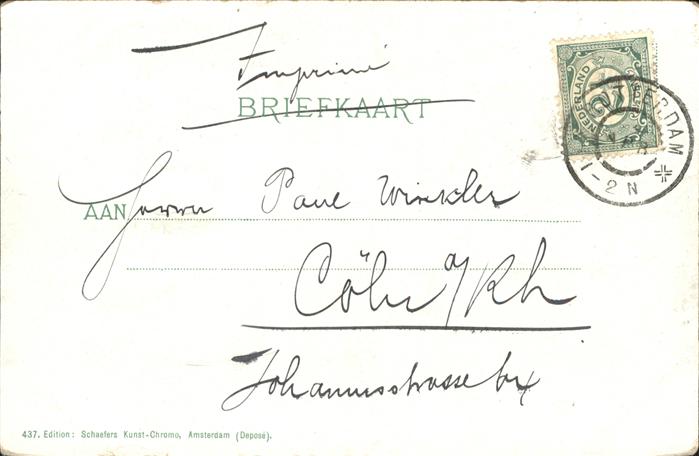 Imprimé
BRIEFKAART
NEDERLAND
RDAM
1-2 N
AAN Herrn Paul Winkler
Cöln a/Rh
Johannisstrasse
437. Edition: Schaefers Kunst-Chromo, Amsterdam (Deposé).